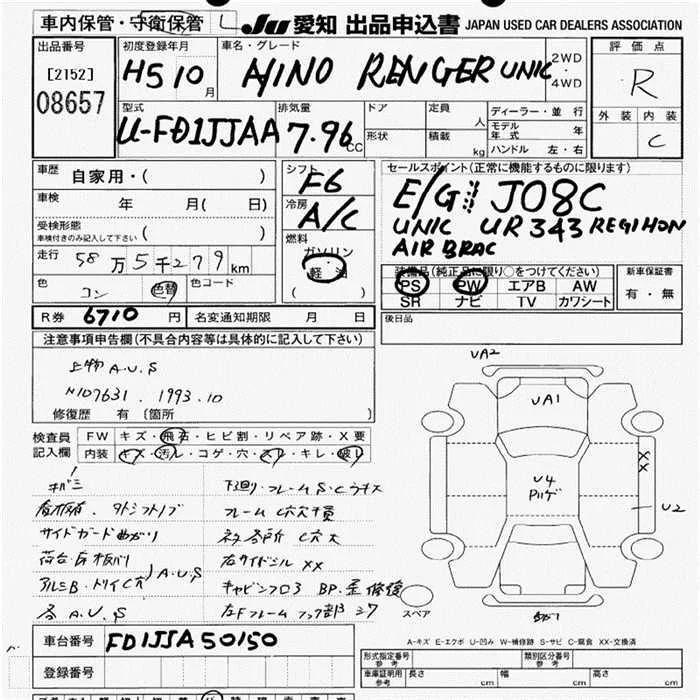 車内保管・守衛保管 L
JU 愛知 出品申込書 JAPAN USED CAR DEALERS ASSOCIATION
出品番号
[2152]
08657
初度登録年月
H5 10 月
車名・グレード
HINO RENGER UNIC
2WD・4WD
評価点
R
外装 内装
C
型式
U-FD1JJAA
排気量
7.96 CC
ドア
形状
定員 人
積載 kg
ディーラー・並行
モデル年式 年
ハンドル 左・右
車歴
自家用・( )
車検 年 月( 日)
受検形態
車検付きのみ記入して下さい ( )
走行 58万5千279km
色 コン 色替 色コード
シフト
F6
冷房
A/C
燃料
ガソリン
・
軽油
( )
セールスポイント(正常に機能するものに限ります)
E/G J08C
UNIC UR343 REGIHON
AIR BRAC
装備品(純正品に限り○をつけてください)
PS PW エアB AW
SR ナビ TV カワシート
新車保証書
有・無
R券 6710 円 名変通知期限 月 日
後日品
注意事項申告欄(不具合内容等は具体的に記入して下さい)
上物 A.U.S
N107631. 1993.10
修復歴 有〔箇所 〕
検査員記入欄
FW キズ・飛石・ヒビ割・リペア跡・X要
内装 キズ・汚レ・コゲ・穴・スレ・キレ・破レ
キバミ
下廻り・フレーム S.Cウキズ
サイドガード曲がり
右サイドシル XX
アルミB・トリイC穴 A.U.S
キャビンフロア BP.歪 修復
各 A.U.S
UA2
UA1
U4
XX
U2
スペア
A-キズ E-エクボ U-凹み W-補修跡 S-サビ C-腐食 XX-交換済
車台番号 FD1JJA50150
登録番号
型式指定番号 参考
類別区分番号 参考
車庫証明用 参考 長さ cm 幅 cm 高さ cm